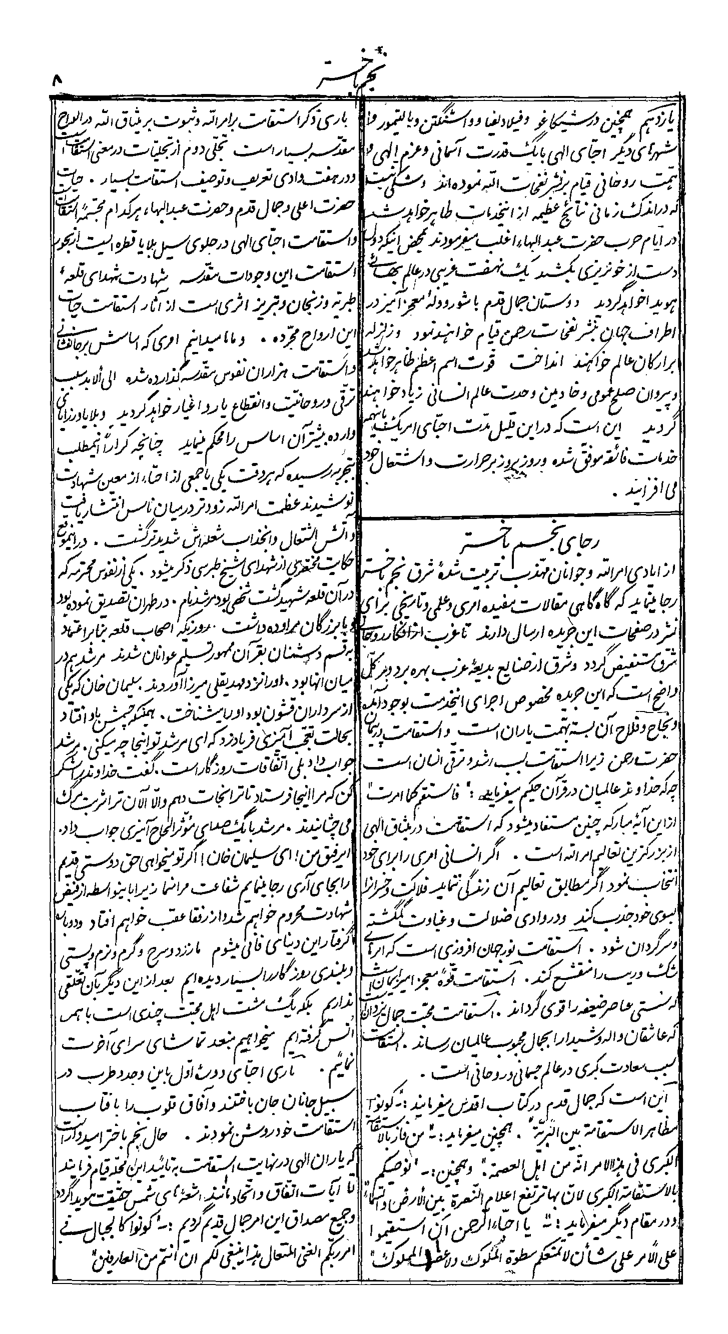 نجم باختر
۸
یازدهم همچنین در شیکاغو وفیلادلفیا وواشنگتن وبالتیمور و
شهرهای دیگر احبّای الهی بایک قدرت آسمانی وعزم الهی و
همّت روحانی قیام بر نشر نفحات الله نموده اند وشکّی نیست
که در اندک زمانی نتائج عظیمه از اینخدمات ظاهر خواهد شد
در ایّام حرب حضرت عبدالبهاء اغلب میفرمودند بمحض اینکه دول
دست از خونریزی بکشند یک نهضت غریبی در عالم بهائی
هویدا خواهد گردید دوستان جمال قدم با شور و ولهٔ معجز آمیز در
اطراف جهان بنشر نفحات رحمن قیام خواهند نمود وزلزله
بر ارکان عالم خواهند انداخت قوت اسم اعظم ظاهر خواهد شد
و پیروان صلح عمومی وخادمین وحدت عالم انسانی زیاد خواهند
گردید این است که در این قلیل مدّت احبّای امریک باینهمه
خدمات فائقه موفق شده وروز بروز بر حرارت واشتعال خود
می افزایند .
رجای نجم باختر
از ایادی امرالله وجوانان مهذّب تربیت شدهٔ شرق نجم باختر
رجا مینماید که گاه گاهی مقالات مفیده امری وعلمی وتاریخی برای
نشر در صفحات این جریده ارسال دارند تا غرب از افکار روحانی
شرق مستفیض گردد وشرق از صنایع بدیعهٔ غرب بهره برد بر کلّ
واضح است که این جریده مخصوص اجرای اینخدمت بوجود آمده
ونجاح وفلاح آن بسته بهمّت یاران است واستقامت پیمان
حضرت رحمن زیرا استقامت سبب رشد وترقی انسان است
چه که خداوند عالمیان در قرآن حکیم میفرماید : "فاستقم کما امرت"
از این آیهٔ مبارکه چنین مستفاد میشود که استقامت در میثاق الهی
از بزرگترین تعالیم امرالله است . اگر انسانی امری را برای خود
انتخاب نمود اگر مطابق تعالیم آن زندگی ننماید فلاکت وخسران را
بسوی خود جذب کند ودر وادی ضلالت وغباوت گمگشته
وسرگردان شود . استقامت نور جهان افروزی است که ابرهای
شک وریب را منقشع کند . استقامت قوّهٔ معجز آمیز ایمان است
که سستی عناصر ضعیفه را قوی گرداند . استقامت محبت جمال یزدان است
که عاشقان واله وشیدا را بجمال محبوب عالمیان رساند . استقامت
سبب سعادت کبری در عالم جسمانی وروحانی است .
این است که جمال قدم در کتاب اقدس میفرمایند : "کونوا
مظاهر الاستقامة بین البریّة" . همچنین میفرماید : "من فاز بالاستقامة
الکبری فی هذا الامر انّه من اهل العصمة" وهمچنین : "نوصیکم
بالاستقامة الکبری لانّ بها ترتفع اعلام النصرة بین الارض والسّماء"
ودر مقام دیگر میفرماید : " یا احبّاء الرحمن ان استقیموا
علی الامر علی شأن لا تمنعکم سطوة الملوک ولا المملوک"
باری ذکر استقامت بر امرالله وثبوت بر میثاق الله در الواح
مقدّسه بسیار است تجلّی دوم از تجلّیات در معنی استقامت است
ودر هفت وادی تعریف وتوصیف استقامت بسیار . حیات
حضرت اعلی وجمال قدم وحضرت عبدالبهاء هر کدام مجسّمهٔ استقامت
واستقامت احبّای الهی در جلوی سیل بلایا قطره ایست از بحور
استقامت این وجودات مقدسه شهادت شهدای قلعهٔ
طبریه وزنجان وتبریز اثری است از آثار استقامت حیات
این ارواح مجرّده . وما میدانیم امری که اساسش بر جانفشانی
واستقامت هزاران نفوس مقدسه گذارده شده الی الابد سبب
ترقی وروحانیت وانقطاع یار واغیار خواهد گردید وبلایا ورزایای
وارده بیشتر آن اساس را محکم نماید چنانچه کراراً اینمطلب
بتجربه رسیده که هر وقت یکی یا جمعی از احبّاء از معین شهادت
نوشیدند عظمت امرالله زودتر در میان ناس انتشار یافت
وآتش اشتعال وانجذاب شعله اش شدیدتر گشت . در اینموقع
حکایت مختصری از شهدای شیخ طبرسی ذکر میشود . یکی از نفوس محترمه که
در آن قلعه شهید گشت شخصی بود مرشد نام . در طهران تصدیق نموده بود
وبا بزرگان مراوده داشت . روزیکه اصحاب قلعه بنا بر اعتماد
بقسم دشمنان بقرآن ممهور تسلیم عوانان شدند مرشد هم در
میان آنها بود . او را نزد مهدیقلی میرزا آوردند . سلیمان خان که یکی
از سرداران قشون بود او را میشناخت . همینکه چشمش باو افتاد
بحالت تعجّب آمیزی فریاد زد که ای مرشد تو اینجا چه میکنی . مرشد
جواب داد بلی اتفاقات روزگار است . گفت خداوند را شکر
کن که مرا اینجا فرستاد تا ترا نجات دهم والّا الآن ترا شربت مرگ
می چشانیدند . مرشد با یک صدای مؤثر الحاح آمیزی جواب داد .
ای رفیق من ! ای سلیمان خان ! اگر تو میخواهی حق دوستی قدیم
را بجای آری رجا مینمایم شفاعت مرا منما زیرا باینواسطه از فیض
شهادت محروم خواهم شد از رفقا عقب خواهم افتاد ودوباره
گرفتار این دنیای فانی میشوم ما زرد وسرخ وگرم ونرم وپستی
وبلندی روزگار را بسیار دیده ایم بعد از این دیگر بآن تعلّقی
نداریم بلکه یک مشت اهل محبت چندی است با هم
انس گرفته ایم میخواهیم متّحداً تماشای سرای آخرت
نمائیم . باری احبّای دورهٔ اول باین وجد وطرب در
سبیل جانان جان باختند وآفاق قلوب را بآفتاب
استقامت خود روشن نمودند . حال نجم باختر امیدوار است
که یاران الهی در نهایت استقامت به تأئید این قیام فرمایند
تا آیات اتفاق واتحاد مانند اشعّه های شمس حقیقت هویدا گردد
وجمیع مصداق این امر جمال قدیم گردیم : "کونوا کالجبال فی
امر ربّکم الغنیّ المتعال هذا ینبغی لکم ان انتم من العارفین"